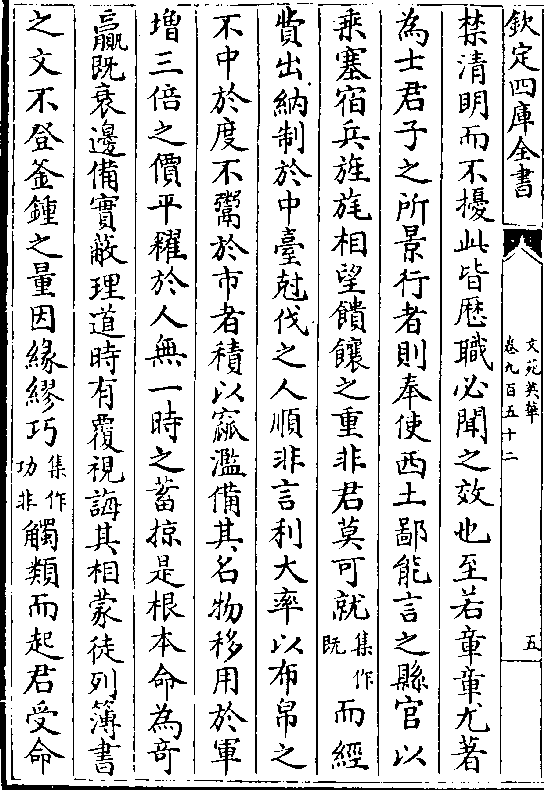 欽定四庫全書
文苑英華
卷九百五十二
五
禁清明而不擾此皆歴職必聞之效也至若章章尤著
為士君子之所景行者則奉使西土鄙能言之縣官以
乘塞宿兵旌旄相望饋饟之重非君莫可就集作既而經
費出納制於中臺尅伐之人順非言利大率以布帛之
不中於度不鬻於市者積以窳濫備其名物移用於軍
増三倍之價平糴於人無一時之蓄掠是根本命為竒
羸既衰邊備實蔽理道時有覆視誨其相蒙徒列簿書
之文不登釜鍾之量因緣繆巧集作功非觸類而起君受命